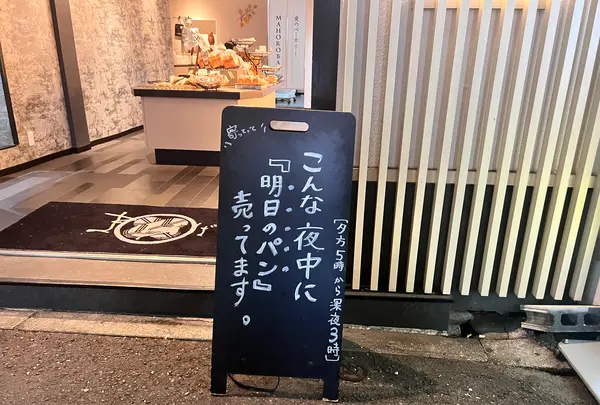 寄ってって
こんな夜中に
『明日のパン』
売ってます。
[夕方5時から深夜3時]
夜のベーカリー
MAHOROBA